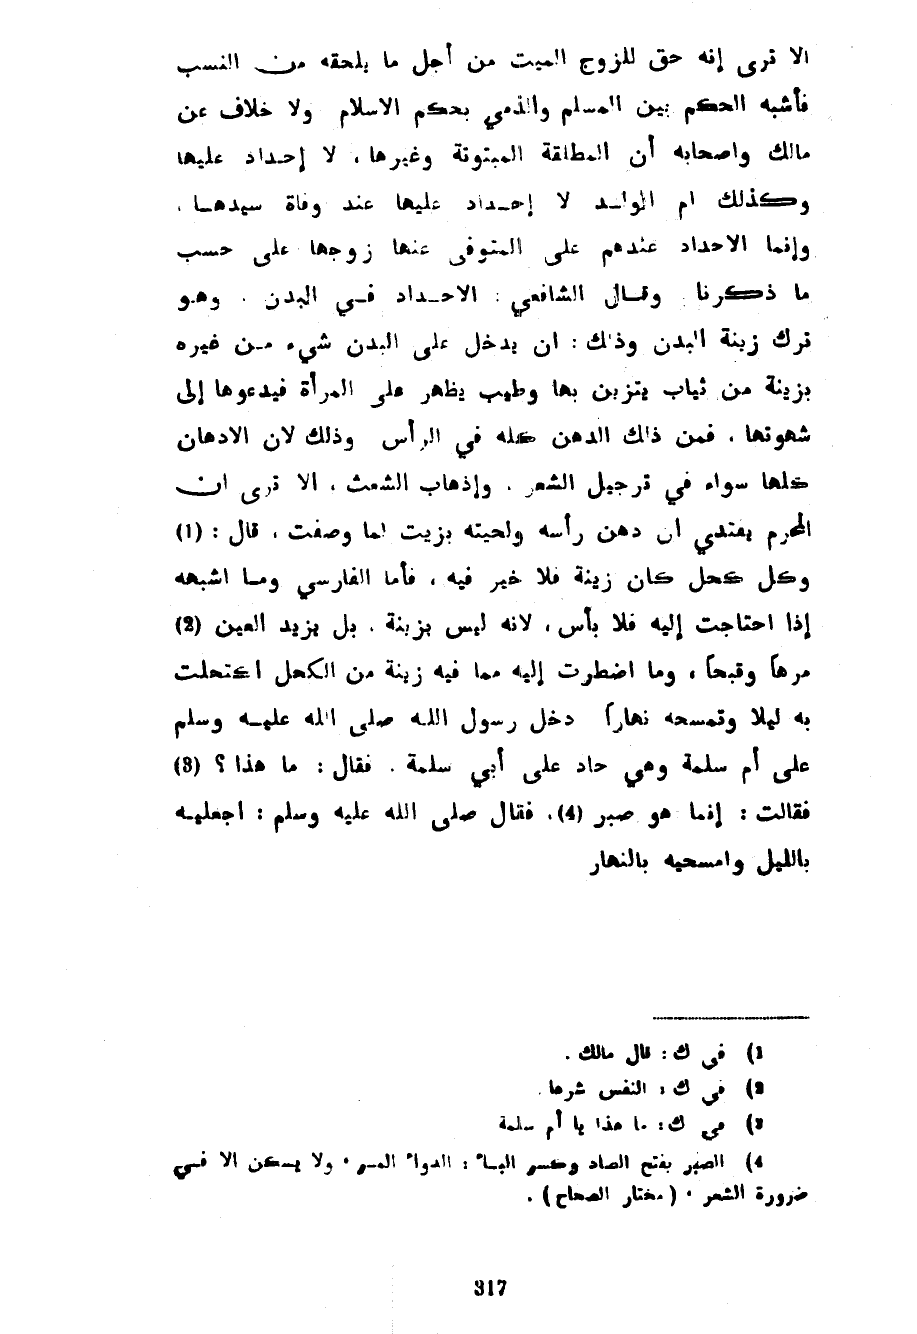 الا ترى إنه حق للزوج الميت من أجل ما يلحقه من النسب
فأشبه الحكم بين المسلم والذمي بحكم الاسلام ولا خلاف عن
مالك واصحابه أن المطلقة المبتوتة وغيرها ، لا إحداد عليها
وكذلك ام الولد لا إحداد عليها عند وفاة سيدها ،
وإنما الاحداد عندهم على المتوفى عنها زوجها على حسب
ما ذكرنا . وقال الشافعي : الاحداد في البدن . وهو
ترك زينة البدن وذلك : ان يدخل على البدن شيء من غيره
بزينة من ثياب يتزين بها وطيب يظهر على المرأة فيدعوها إلى
شهوتها ، فمن ذلك الدهن كله في الرأس وذلك لان الادهان
كلها سواء في ترجيل الشعر . وإذهاب الشعث ، الا ترى ان
المحرم يفتدي ان دهن رأسه ولحيته بزيت لما وصفت ، قال : (1)
وكل كحل كان زينة فلا خير فيه ، فأما الفارسي وما اشبهه
إذا احتاجت إليه فلا بأس ، لانه ليس بزينة . بل يزيد العين (2)
مرهاً وقبحاً ، وما اضطرت إليه مما فيه زينة من الكحل اكتحلت
به ليلا وتمسحه نهاراً دخل رسول الله صلى الله عليه وسلم
على أم سلمة وهي حاد على أبي سلمة . فقال : ما هذا ؟ (3)
فقالت : إنما هو صبر (4) ، فقال صلى الله عليه وسلم : اجعليه
بالليل وامسحيه بالنهار
1) في ك : قال مالك .
2) في ك : النفس شرها .
3) في ك : ما هذا يا أم سلمة
4) الصبر بفتح الصاد وكسر الباء : الدواء المر ، ولا يسكن الا في
ضرورة الشعر . ( مختار الصحاح ) .
317